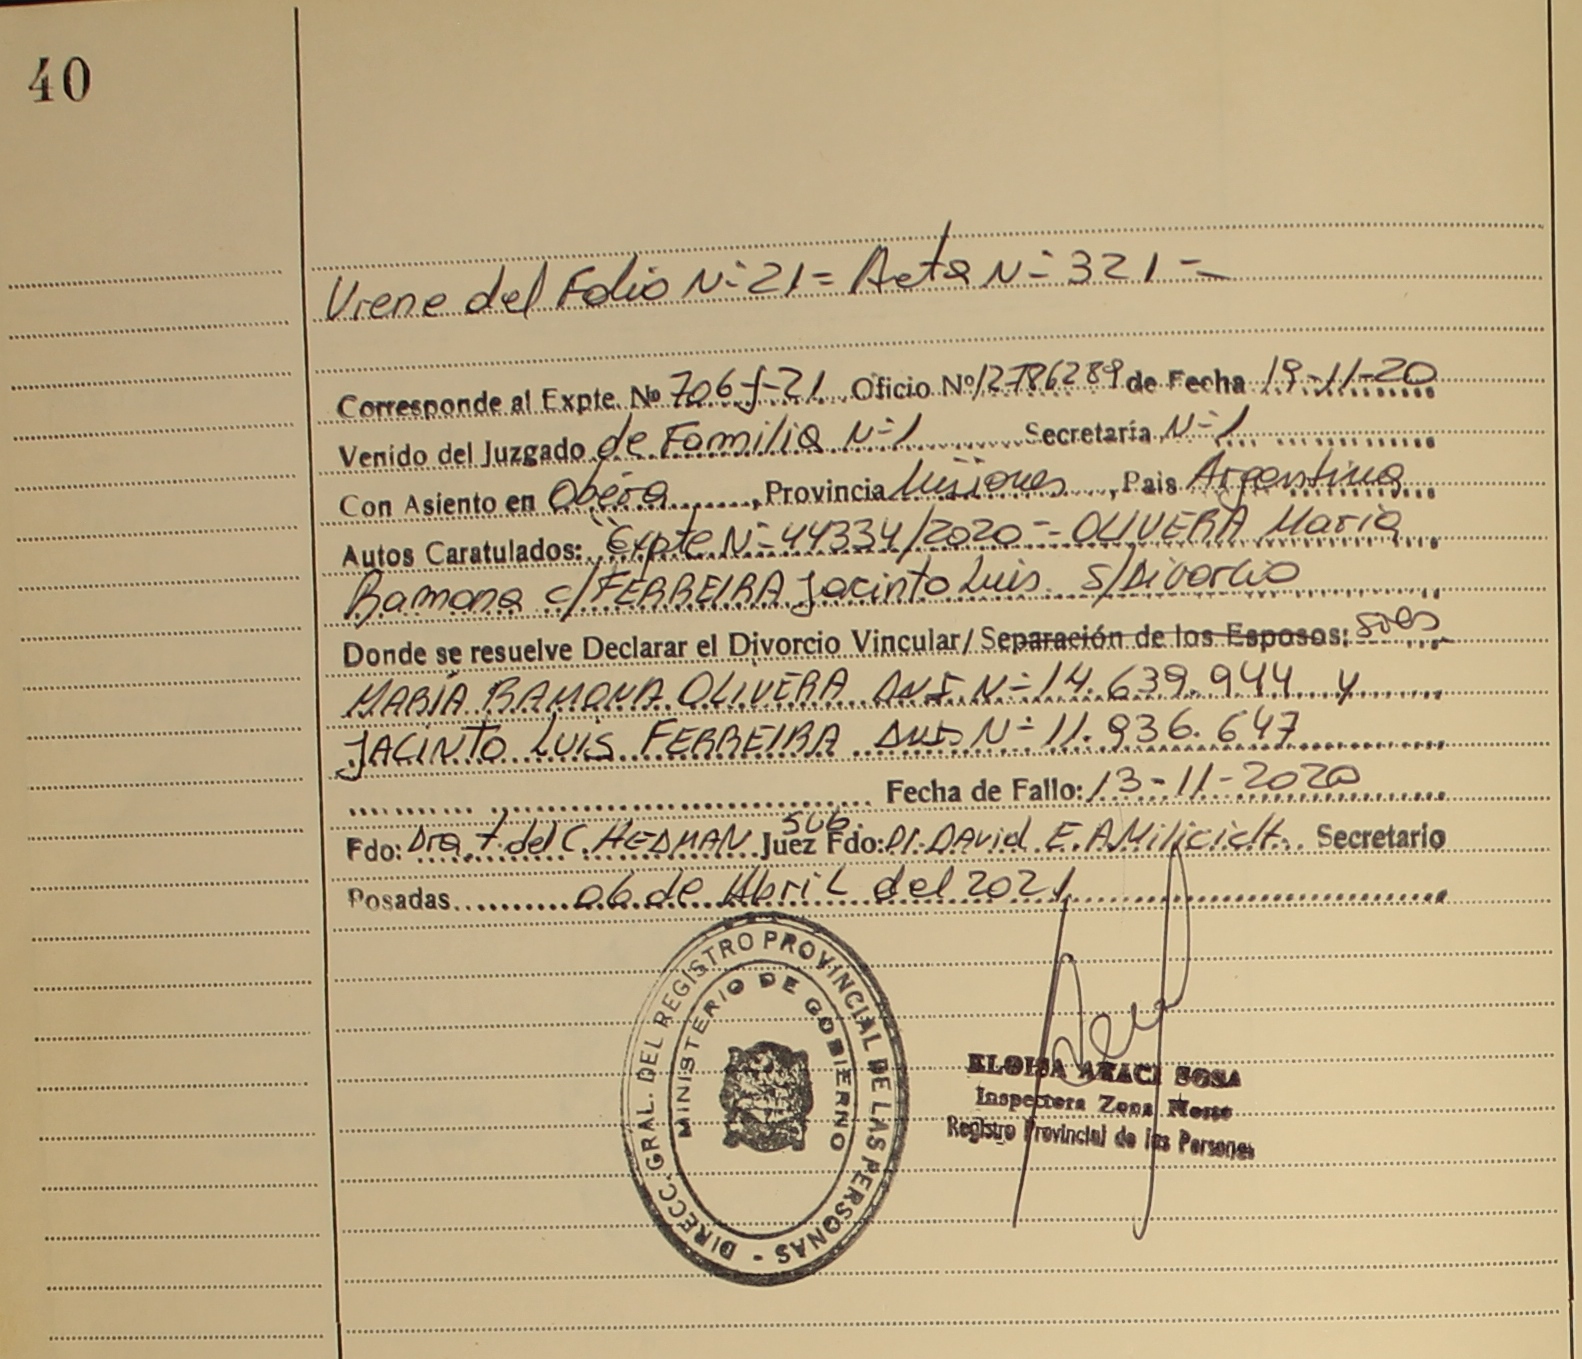 40
Viene del Folio Nº 21 = Acta Nº 321 =
Corresponde al Expte. Nº 706-J-21 Oficio Nº 12786289 de Fecha 19-11-20
Venido del Juzgado de Familia Nº 1 Secretaría Nº 1
Con Asiento en Oberá, Provincia Misiones, Pais Argentina
Autos Caratulados: "Expte Nº 44334/2020 = OLIVERA Maria
Ramona c/ FERREIRA Jacinto Luis s/Divorcio
Donde se resuelve Declarar el Divorcio Vincular/ Separación de los Esposos:
MARÍA RAMONA OLIVERA DNI Nº 14.639.944 y
JACINTO LUIS FERREIRA DNI Nº 11.936.647
Fecha de Fallo: 13-11-2020
Fdo: Dra. del C. HEDMAN Juez Fdo: Dr. DAVID E.A. Secretario
Posadas 06 de Abril del 2021
DIRECC. GRAL. DEL REGISTRO PROVINCIAL DE LAS PERSONAS -
MINISTERIO DE GOBIERNO
ELOISA ARACI SOSA
Inspectora Zona Norte
Registro Provincial de las Personas